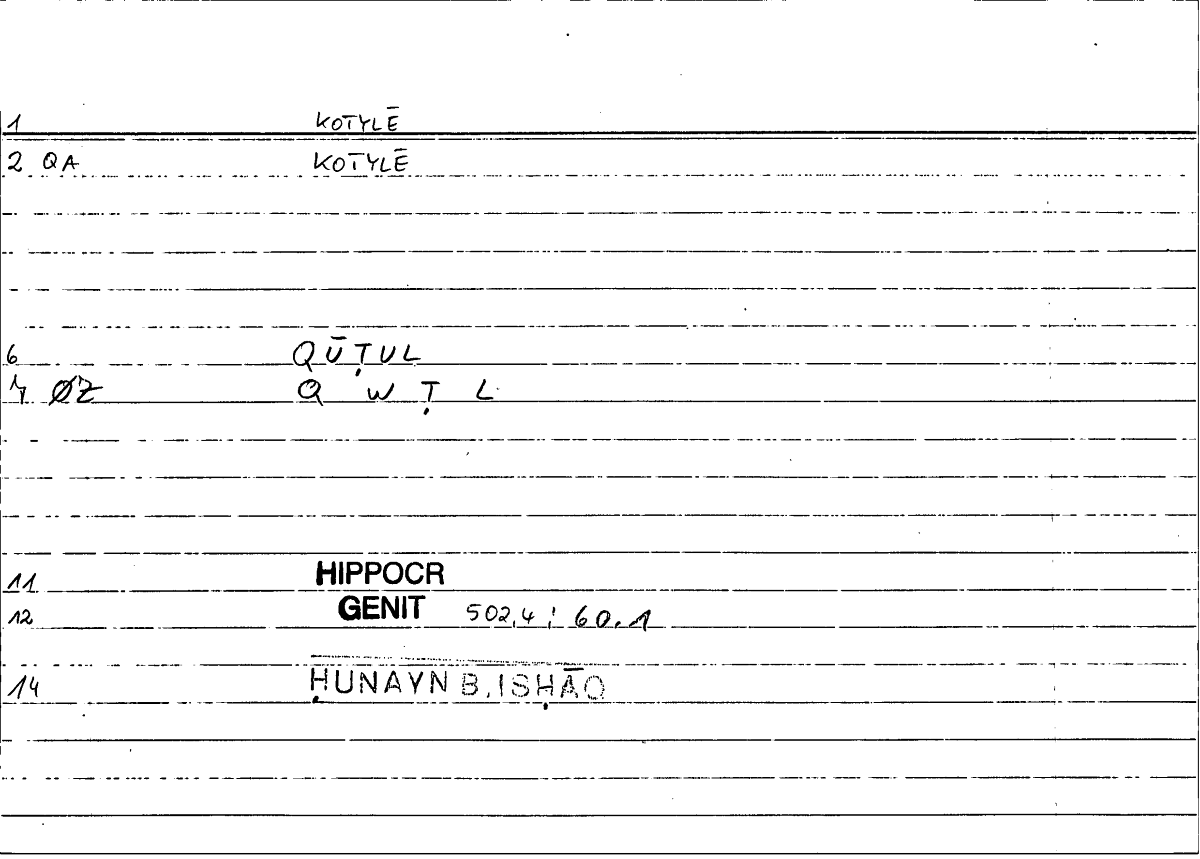 1 KOTYLĒ
2 QA KOTYLĒ
6 QŪṬUL
7 ØZ Q W Ṭ L
11 HIPPOCR
12 GENIT 502,4; 60.1
14 ḤUNAYN B. ISḤĀQ